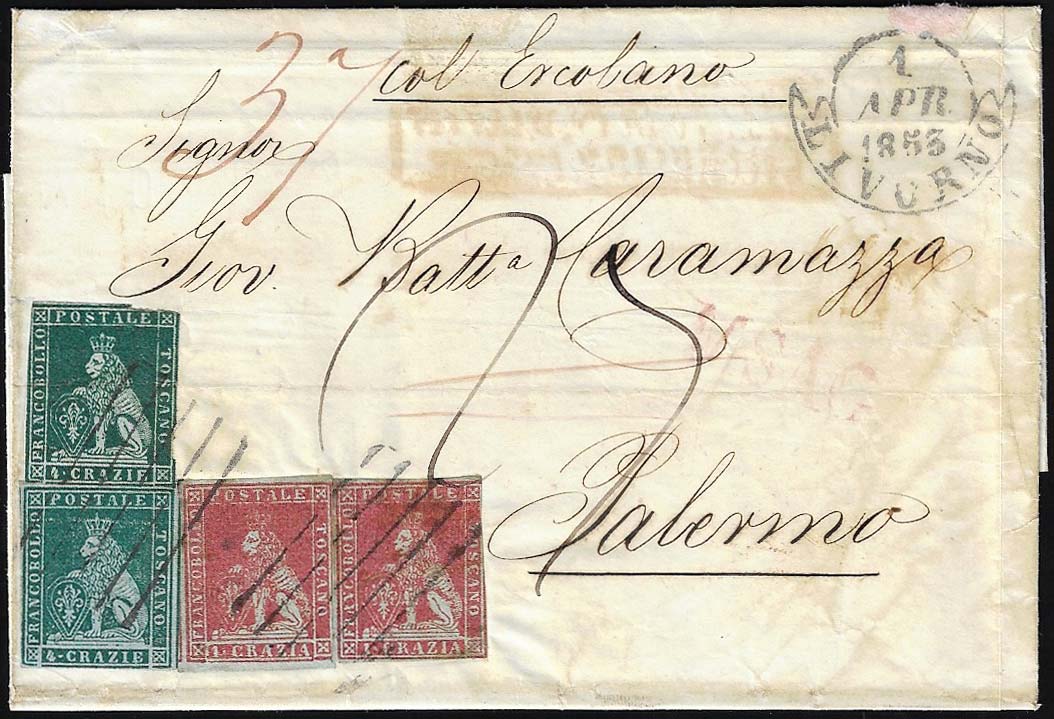 col Ercolano
1
APR
1853
LIVORNO
Signor
Giov. Batt.a Caramazza
Palermo
POSTALE
FRANCOBOLLO
TOSCANO
4-CRAZIE
POSTALE
FRANCOBOLLO
TOSCANO
4-CRAZIE
POSTALE
FRANCOBOLLO
TOSCANO
1.CRAZIA
POSTALE
FRANCOBOLLO
TOSCANO
CRAZIA